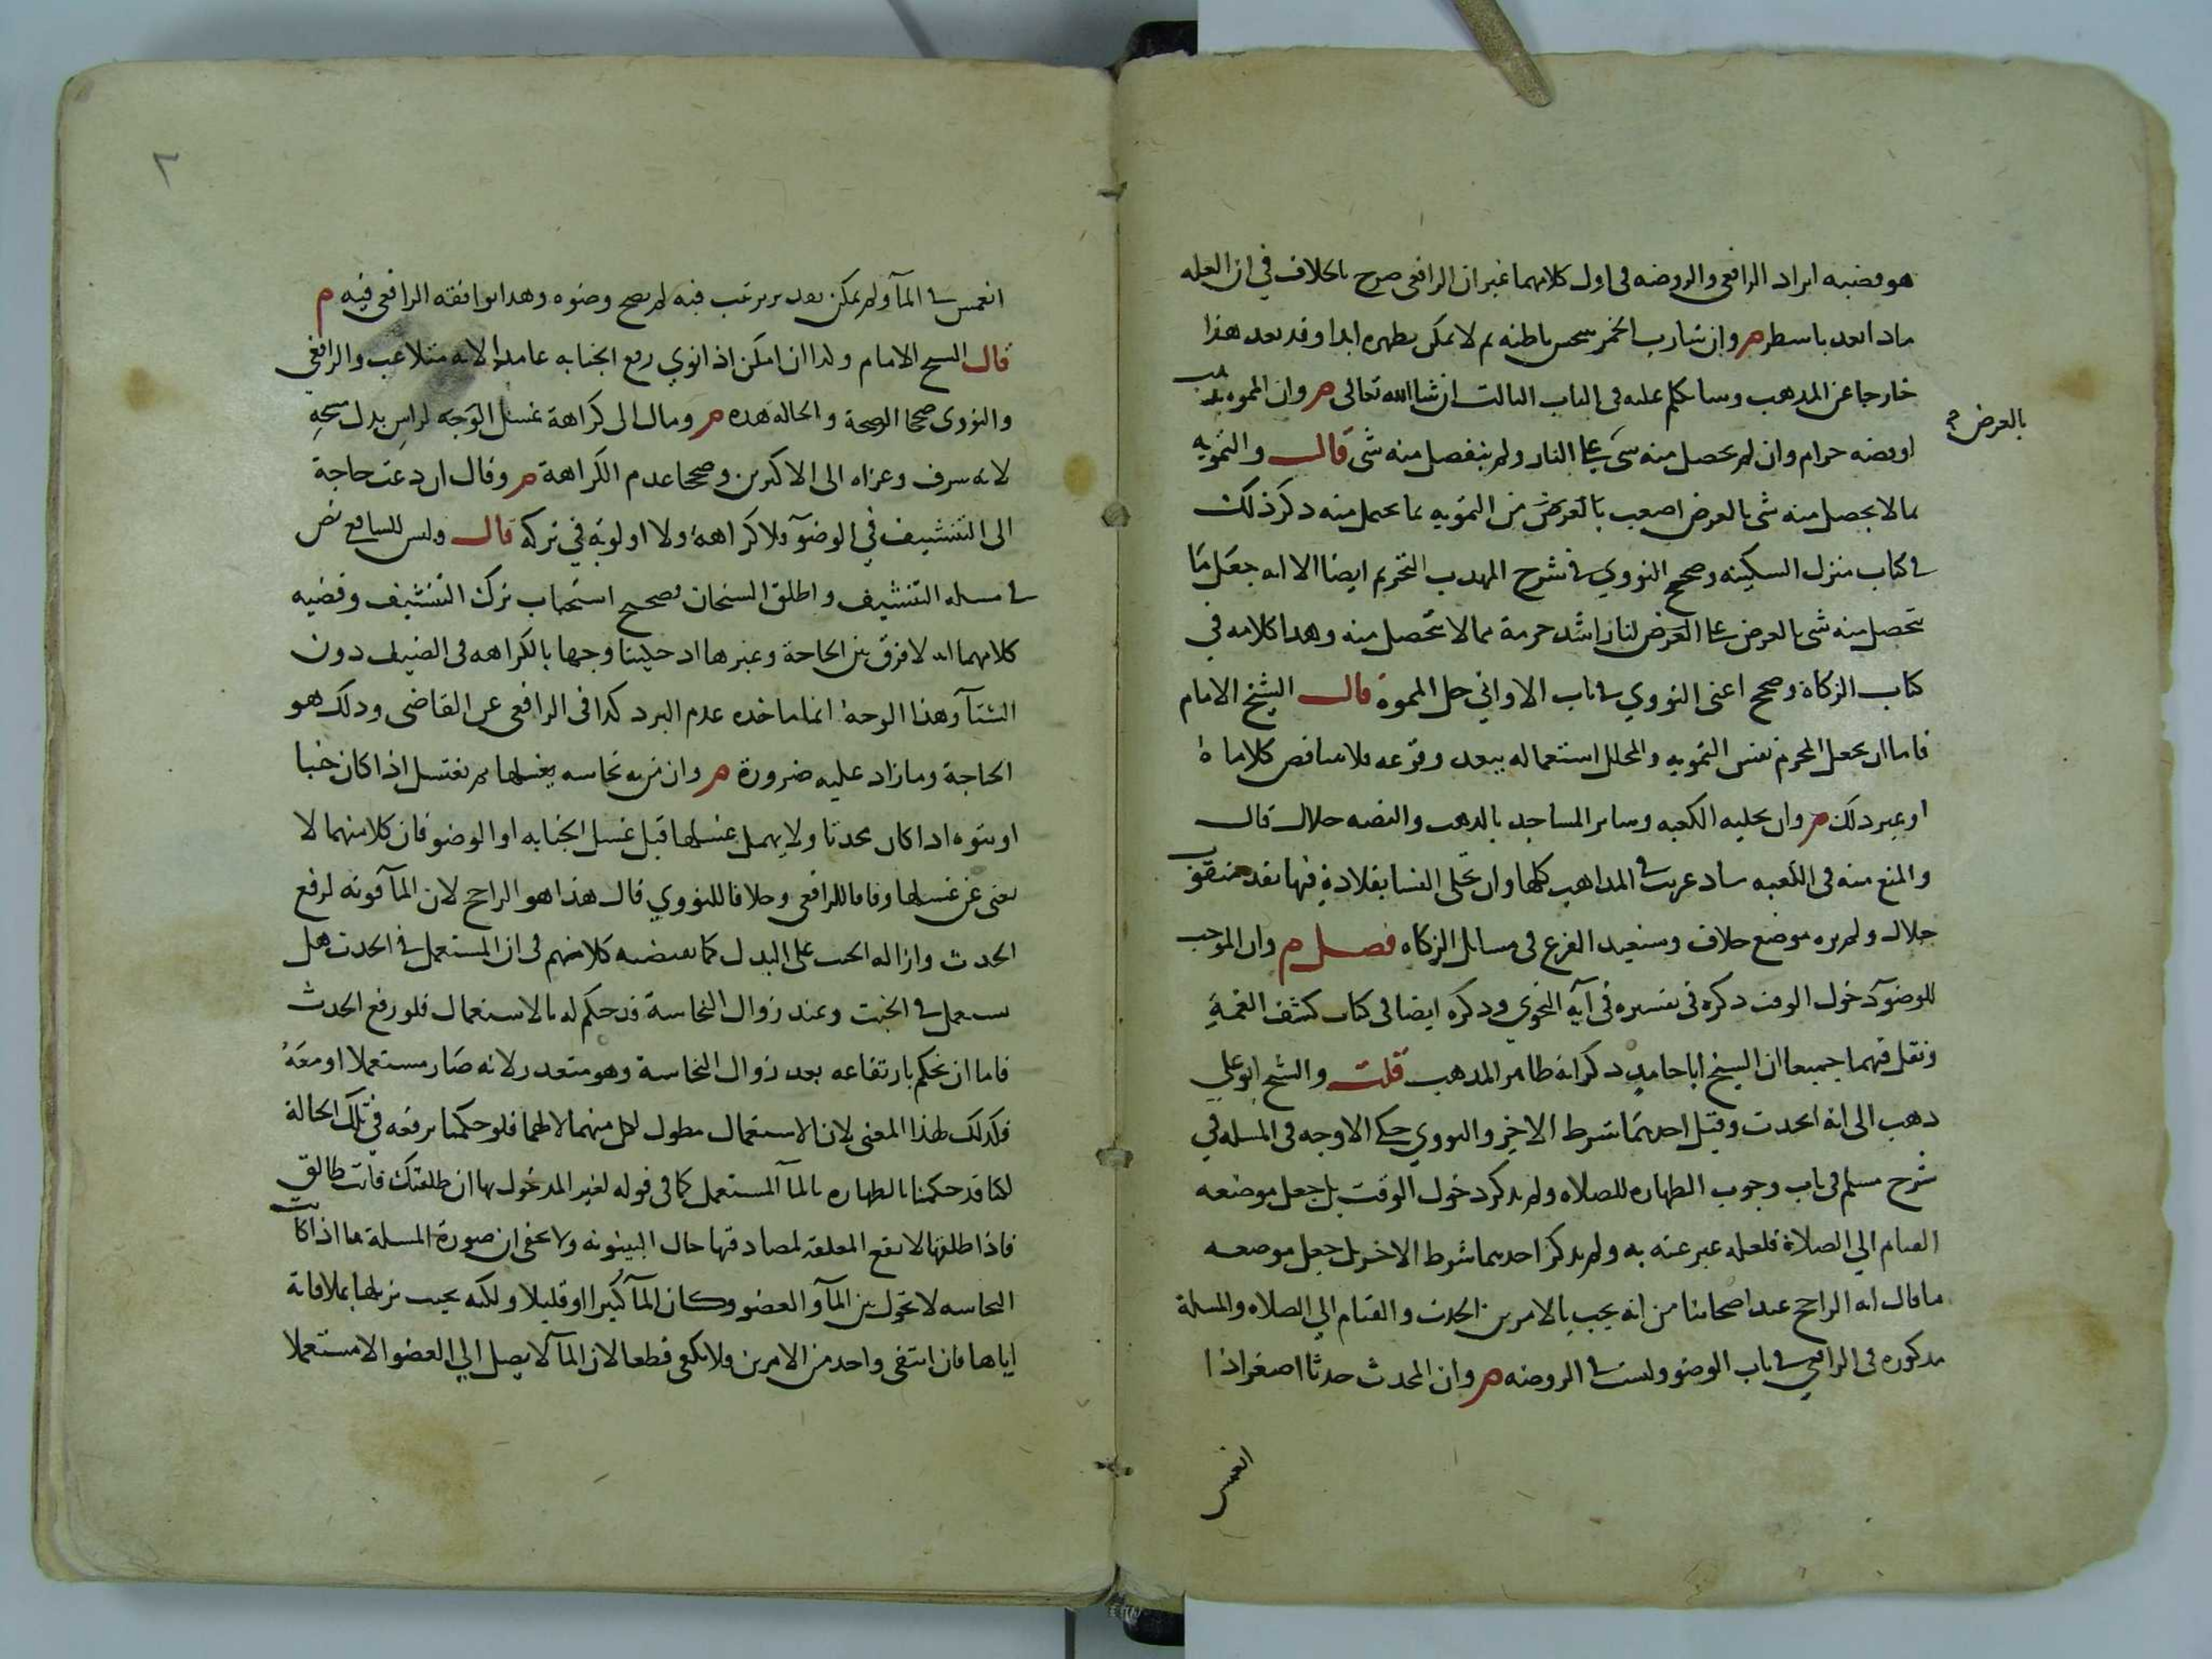 هو قضيه ايراد الرافعي والروضه في اول كلامهما غير ان الرافعي صرح بالخلاف في ان العله
ماذا بعد باسطر م وان شارب الخمر نجس باطنه ثم لا يمكن تطهره ابدا وقد بعد هذا
خارجا عن المذهب وسانكلم عليه في الباب الثالث ان شا الله تعالى م وان المموه بذهب
بالعرض
او فضه حرام وان لم يحصل منه شي على النار ولم ينفصل منه شي قال والتمويه
بما لا يحصل منه شي بالعرض اصعب بالعرض من التمويه بما يحصل منه ذكر ذلك
في كتاب منزل السكينه وصحح النووي في شرح المهذب التحريم ايضا الا انه جعل ما
تحصل منه شي بالعرض على العرض لنا اشد حرمة مما لا يتحصل منه وهذا كلامه في
كتاب الزكاة وصحح اعني النووي في باب الاواني حل المموه قال الشيخ الامام
فاما ان يجعل المحرم نفس التمويه والمحلل استعماله بعد وقوعه فلا يتناقض كلاماه
او غير ذلك م وان تحليه الكعبه وساير المساجد بالذهب والفضه حلال قال
والمنع منه في الكعبه شاذ غريب في المذاهب كلها وان تحلي النسا بقلادة فيها نقد مثقوب
حلال ولم يره موضع خلاف وسنعيد الفرع في مسائل الزكاه فصل م وان الموجب
للوضوء دخول الوقت ذكره في تفسيره في آية النجوى وذكره ايضا في كتاب كشف الغمة
ونقل فيهما جميعا ان الشيخ ابا حامد ذكر انه ظاهر المذهب قلت والشيخ ابو علي
ذهب الى انه الحدث وقيل احدهما شرط الاخر والنووي حكى الاوجه في المسله في
شرح مسلم في باب وجوب الطهاره للصلاه ولم يذكر دخول الوقت بل جعل موضعه
القيام الي الصلاة فلعله عبر عنه به ولم يذكر احدهما شرط الاخر بل جعل موضعه
ما قال انه الراجح عند اصحابنا من انه يجب بالامرين الحدث والقيام الي الصلاه والمسلة
مذكوره في الرافعي في باب الوضو وليست في الروضه م وان المحدث حدثا اصغر اذا
انغمس
٢
انغمس في المآ ولم يمكن بعد ترتيب فيه لم يصح وضوه وهذا يوافقه الرافعي فيه م
قال الشيخ الامام ولذا ان امكن اذا نوي رفع الجنابه عامدا لانه متلاعب والرافعي
والنووى صححا الصحة والحاله هذه م ومال الى كراهة غسل الوجه لراس بدل مسحه
لانه سرف وعزاه الى الاكثرين وصححا عدم الكراهة م وقال ان دعت حاجة
الى التنشيف في الوضوء فلا كراهة ولا اولوية في تركه قال وليس للشافعي نص
في مسله التنشيف واطلق الشيخان تصحيح استحباب ترك التنشيف وقضيه
كلامهما انه لا فرق بين الحاجة وغيرها اذ حكينا وجها بالكراهه في الصيف دون
الشتآ وهذا الوجه انما ماخذه عدم البرد كذا في الرافعي عن القاضي وذلك هو
الحاجة وما زاد عليه ضرورة م وان من به نجاسه يغسلها ثم يغتسل اذا كان جنبا
او يتوضا اذا كان محدثا ولا يهمل غسلها قبل غسل الجنابه او الوضو فان كلا منهما لا
يغني عن غسلها وفاقا للرافعي وخلافا للنووي قال هذا هو الراجح لان المآ قوته لرفع
الحدث وازاله الخبث على البدل كما يقتضيه كلامهم في ان المستعمل في الحدث هل
يستعمل في الخبث وعند زوال النجاسة قد حكم له بالاستعمال فلو رفع الحدث
فاما ان نحكم بارتفاعه بعد زوال النجاسة وهو متعذر لانه صار مستعملا او معه
فكذلك لهذا المعنى لان الاستعمال مطول لكل منهما لا لهما فلو حكمنا برفعه في تلك الحالة
لكنا قد حكمنا بالطهاره بالمآ المستعمل كما في قوله لغير المدخول بها ان طلقتك فانت طالق
فاذا طلقها لا تقع المعلقه لمصادفتها حال البينونه ولا يخفى ان صورة المسلة ما اذا كانت
النجاسه لا تحول بين المآ والعضو وكان المآ كثيرا او قليلا ولكنه يجب تزيلها بملاقاته
اياها فان انتفى واحد من الامرين فلا يكفي قطعا لان المآ لا يصل الي العضو الا مستعملا